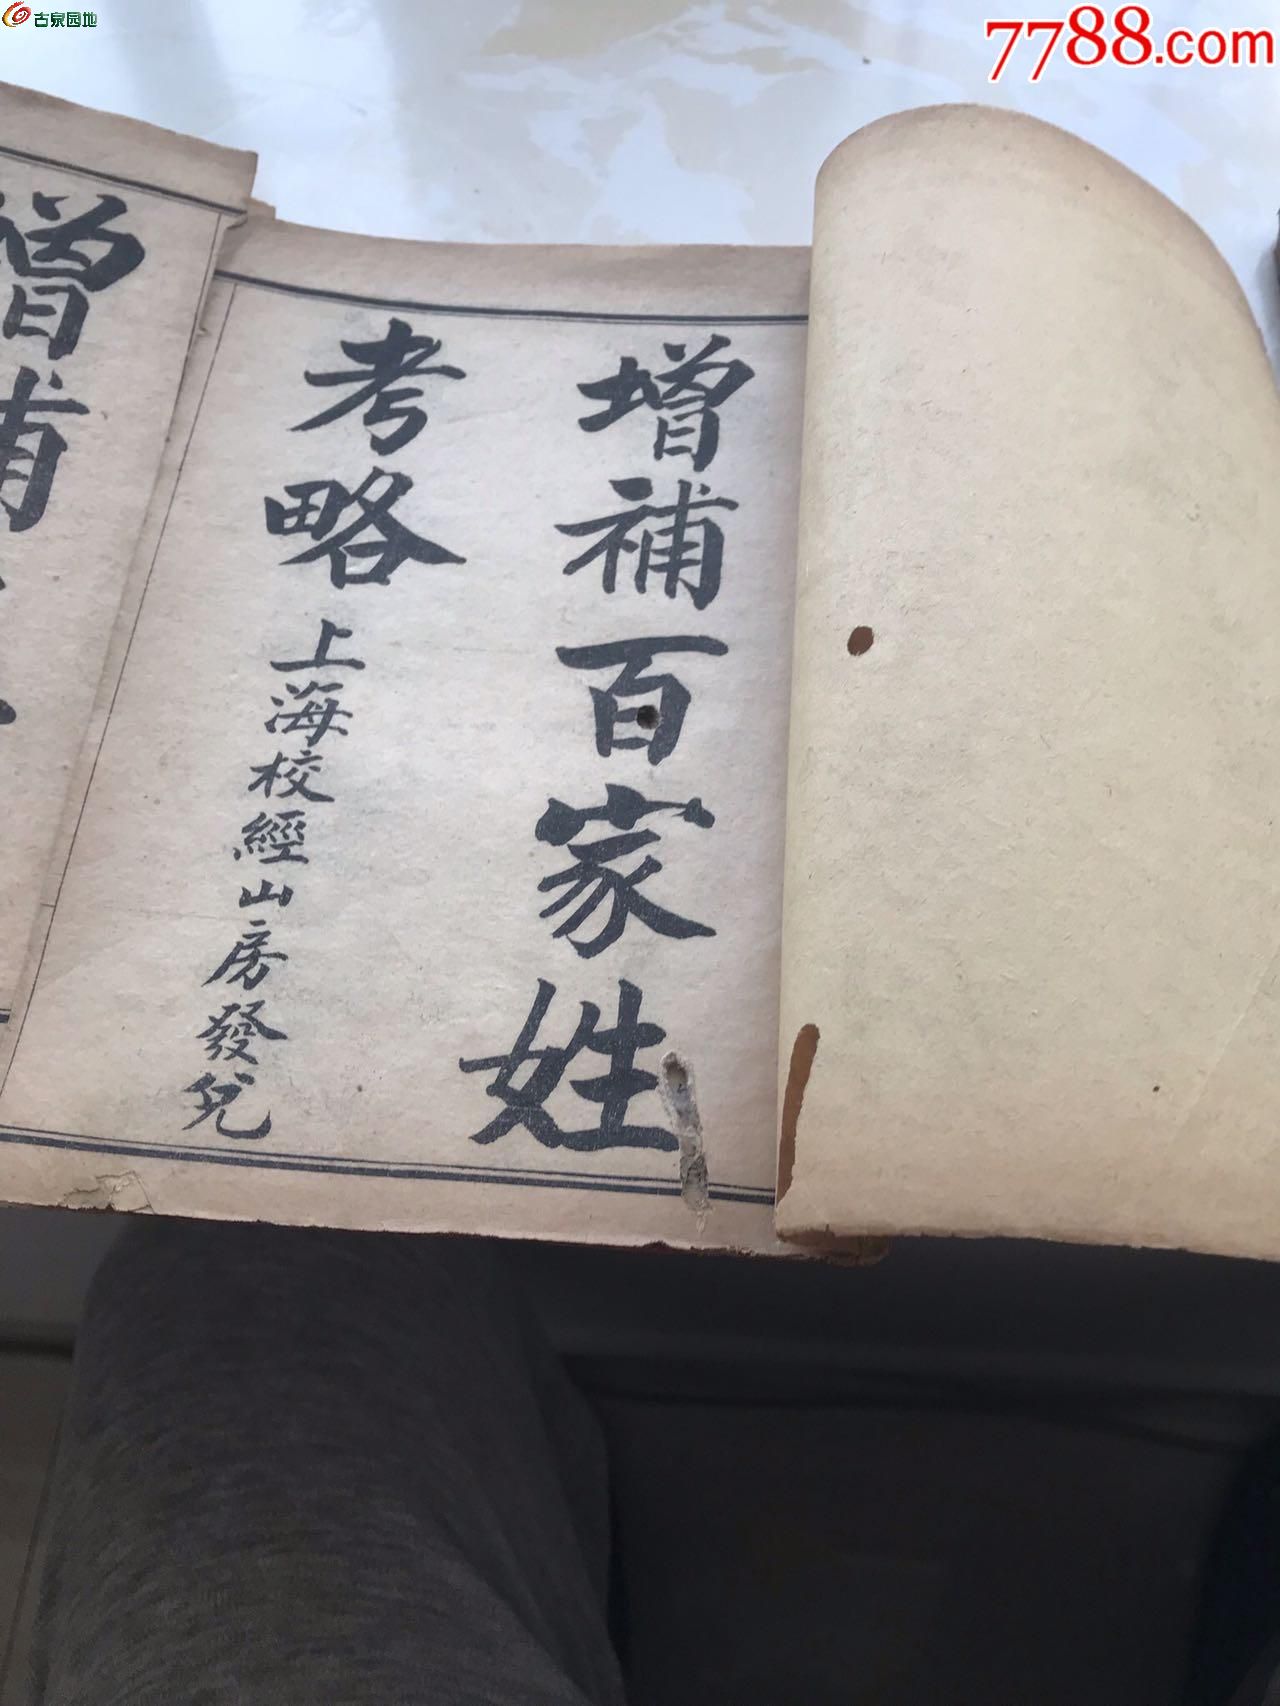 古泉园地
7788.com
增補百家姓
考略
上海校經山房發兌
增補